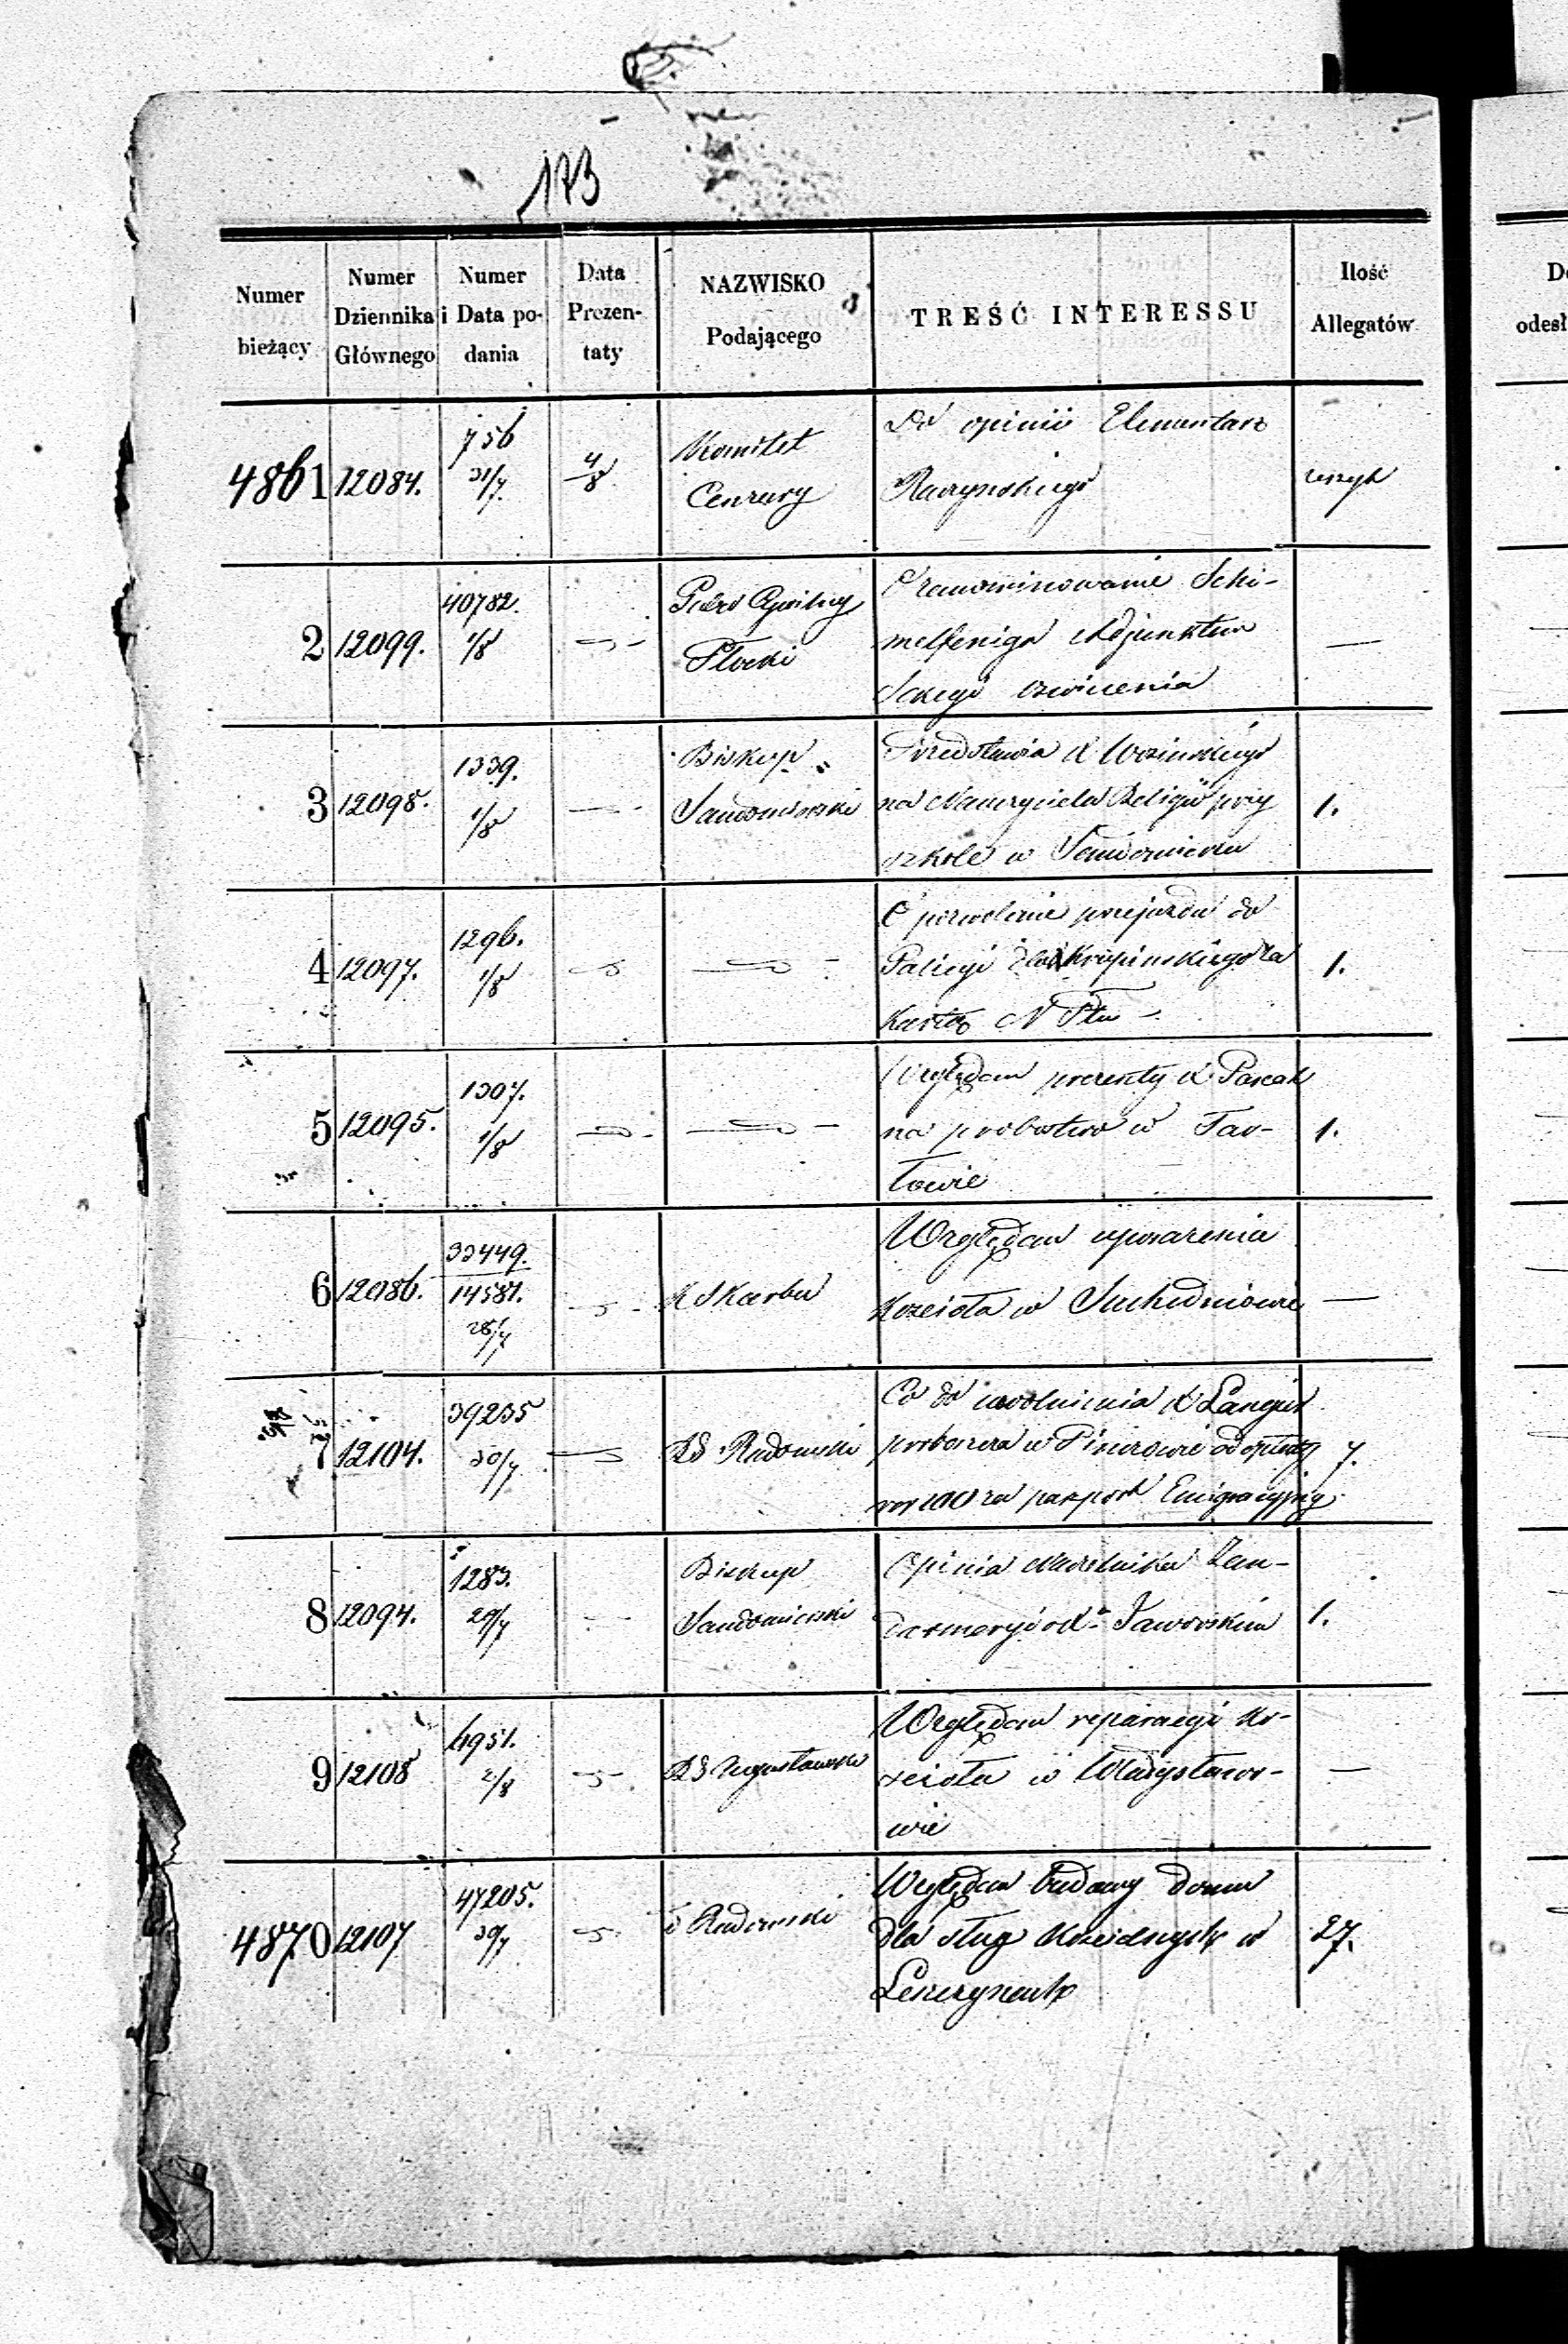 173
Numer bieżący
Numer Dziennika Głównego
Numer i Data podania
Data Prezentaty
NAZWISKO Podającego
TREŚĆ INTERESSU
Ilość Allegatów
4861 12084. 756 31/7. 4/8 Komitet Cenzury
Do opinii Elementarz
Raczynskiego
zeszyt
2 12099. 40782. 1/8 Cywilny Płocki
O zanominowanie Schi-
melfeniga Adjunktem
—
3 12098. 1339. 1/8 Biskup Sandomierski
Przedstawia X
na Nauczyciela Religii przy
szkole w Sandomierzu
1.
4 12097. 1296. 1/8
O pozwolenie przejazdu do
Galicyi dla X za
1.
5 12095. 1307. 1/8
Względem prezenty X
na probostwo w Tar-
łowie
1.
6 12086. 33449. 14581. 28/7 K Skarbu
Względem uposażenia
Kościoła w Suchedniowie
—
7 12104. 39235 30/7 RG Radomski
Co do uwolnienia X
proboszcza w Pinczowie od opłaty
100 za paszport Emigracyjny
7.
8 12094. 1283. 29/7 Biskup Sandomierski
Opinia Naczelnika Żan-
darmeryi o X Jaworskim
1.
9 12108 4951. 2/8 RG Augustowski
Względem reparacyi Ko-
scioła w Władysławo-
wie
—
4870 12107 47205. 30/7 Radomski
Względem budowy domu
dla sług Kościelnych w
Leszczynach
27.